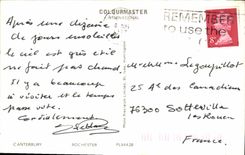 COLOURMASTER
INTERNATIONAL
Après une dizaine
de jours ensoleillés
le ciel est gris et il
ne fait pas chaud.
Il y a beaucoup
à visiter et le temps
passe vite.
Cordialement
REMEMBER
to use the
M. et Mme Legoupillot
25 Av des Canadiens
76300 Sotteville
les Rouen
France
CANTERBURY
ROCHESTER
PLA4428